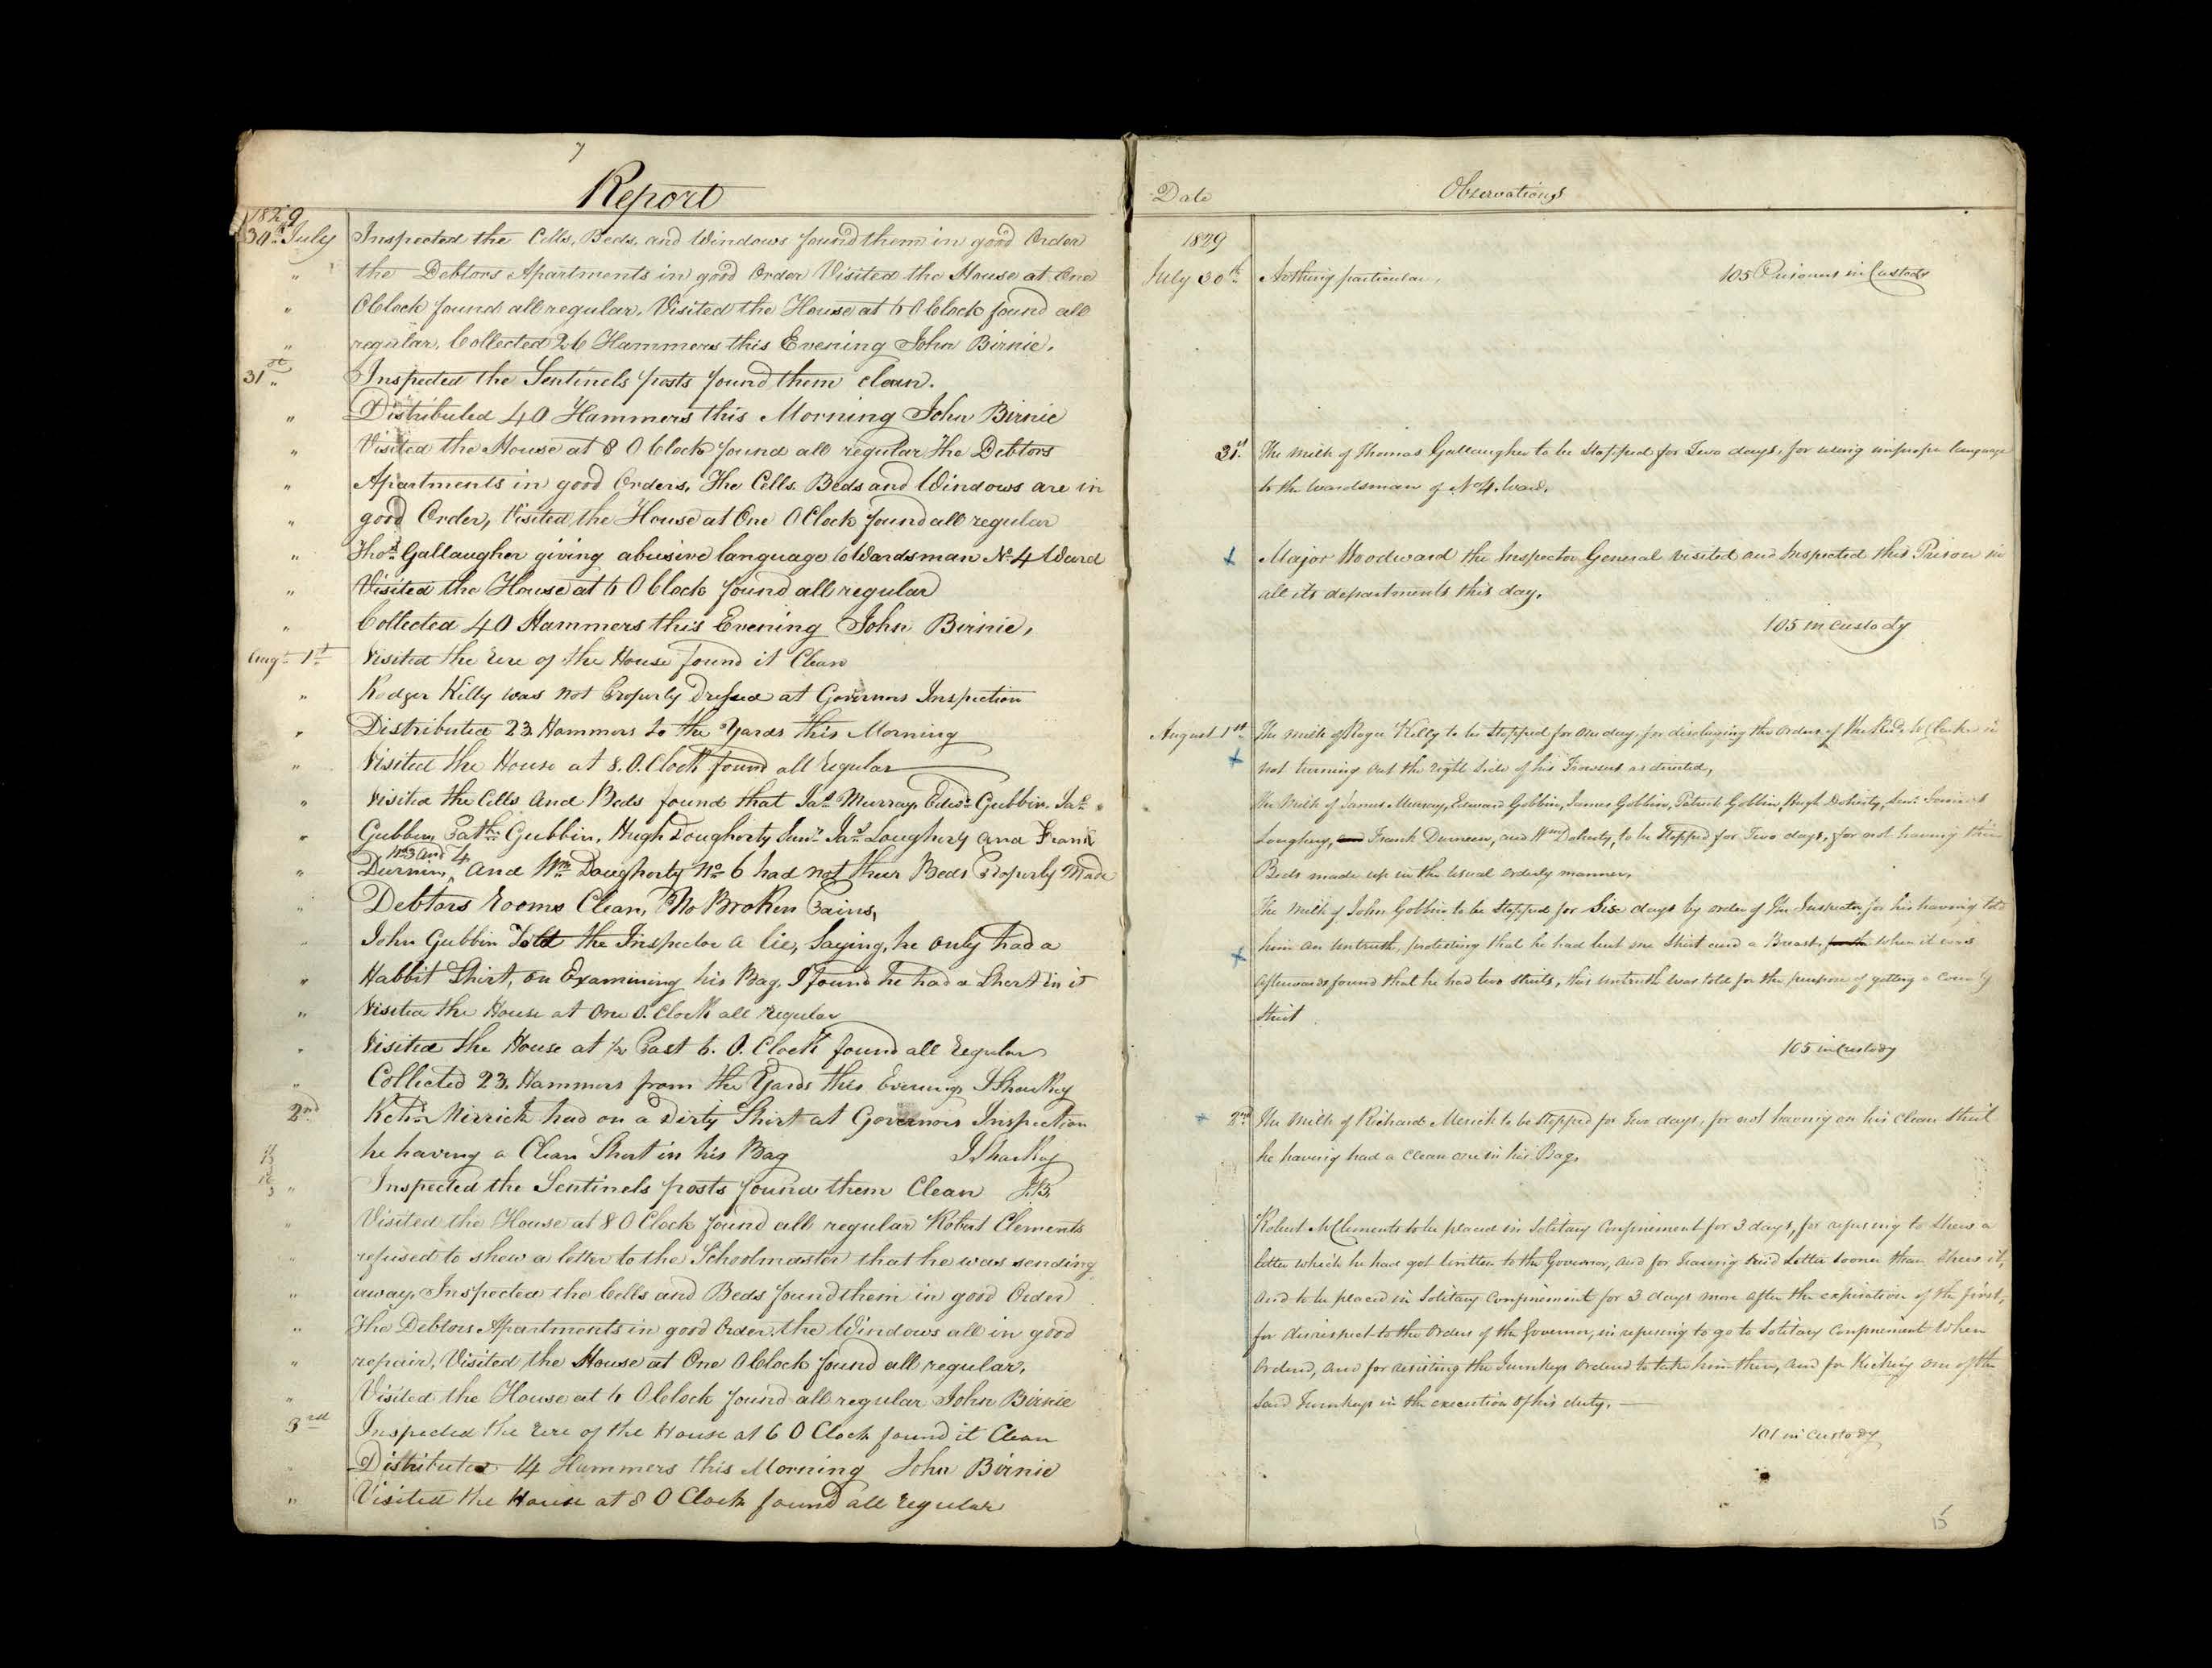 7
Report
1829
30th July Inspected the Cells, Beds, and Windows found them in good Order
" the Debtors Apartments in good Order Visited the House at One
" OClock found all regular, Visited the House at 6 OClock found all
" regular, Collected 26 Hammers this Evening John Birnie.
31st " Inspected the Sentinels posts found them clean.
" Distributed 40 Hammers this Morning John Birnie
" Visited the House at 8 OClock found all regular The Debtors
" Apartments in good Orders, The Cells Beds and Windows are in
" good Order, Visited the House at One OClock found all regular
" Thos Gallaugher giving abusive language to Wardsman No 4 Ward
" Visited the House at 6 OClock found all regular
" Collected 40 Hammers this Evening John Birnie,
Augt 1st Visited the Rere of the House found it Clean
" Rodger Killy was not Properly Dressed at Governors Inspection
" Distributed 23 Hammers to the Yards this Morning
" Visited the House at 8. O.Clock found all Regular
" Visited the Cells and Beds found that Jas Murray, Edwd Gubbin, Jas
" Gubbin, Patk Gubbin, Hugh Dougherty Senr Jas Loughery and Frank
No 3 and 4
" Durnin, and Wm Daugherty No 6 had not their Beds Properly Made
" Debtors Rooms Clean, No Broken Pains,
" John Gubbin Told the Inspector a lie, Saying, he only had a
" Habbit Shirt, on Examining his Bag, I found he had a Shert in it
" Visited the House at One O. Clock all regular
" Visited the House at 1/2 Past 6. O. Clock found all Regular
" Collected 23. Hammers from the Yards this Evening J Sharkey
2nd Merrick had on a Dirty Shirt at Governors Inspection
he having a Clean Shert in his Bag J Sharkey
" Inspected the Sentinels posts found them Clean J.B.
" Visited the House at 8 OClock found all regular Robert Clements
" refused to shew a letter to the Schoolmaster that he was sending
" away, Inspected the Cells and Beds found them in good Order
" The Debtors Apartments in good Order, the Windows all in good
" repair, Visited the House at One OClock found all regular,
" Visited the House at 6 OClock found all regular John Birnie
3rd Inspected the Rere of the House at 6 O Clock found it Clean
" Distributed 14 Hammers this Morning John Birnie
" Visited the House at 8 O Clock found all Regular
Date Observations
1829
July 30th Nothing particular. 105 Prisoners in Custody
31st The milk of Thomas Gallaugher to be stopped for Two days, for using improper language
to the Wardsman of No 4. Ward.
+ Major Woodward the Inspector General visited and Inspected this Prison in
all its departments this day.
105 in custody
August 1st The milk of Roger Kelly to be stopped for one day, for disobeying the orders of the Revd in
+ not turning out the right side of his Trowsers as directed,
The Milk of James Murray, Edward Gobbin, James Gobbin, Patrick Gobbin, Hugh Doherty, Senr James
Loughery, and Frank Durneen, and Wm Doherty, to be stopped for Two days, for not having their
Beds made up in the usual orderly manner.
The milk of John Gobbin to be stopped for Six days by order of The Inspector, for his having told
+ him an untruth, protesting that he had but one Shirt and a Breast, when it was
afterwards found that he had two shirts, this untruth was told for the purpose of getting a County
Shirt.
105 in Custody
+ 2nd The milk of Richard Merick to be stopped for Two days, for not having on his Clean Shirt
he having had a clean one in his Bag.
Robert McClements to be placed in Solitary Confinement for 3 days, for refusing to shew a
letter which he had got written to the Governor, and for tearing said letter sooner than shew it,
and to be placed in Solitary Confinement for 3 days more after the expiration of the first,
for disrespect to the Orders of the Governor, in refusing to go to Solitary Confinement when
Ordered, and for resisting the Turnkeys ordered to take him there, and for Kicking one of the
said Turnkeys in the execution of his duty. —
101 in custody
15